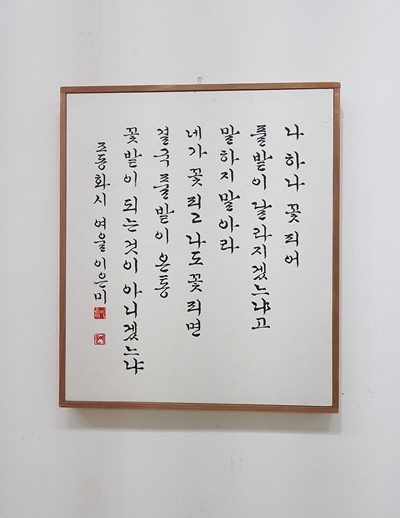 나 하나 꽃 피어
풀밭이 달라지겠느냐고
말하지 말아라
네가 꽃 피고 나도 꽃 피면
결국 풀밭이 온통
꽃밭이 되는 것이 아니겠느냐
조동화 시 여울 이은미